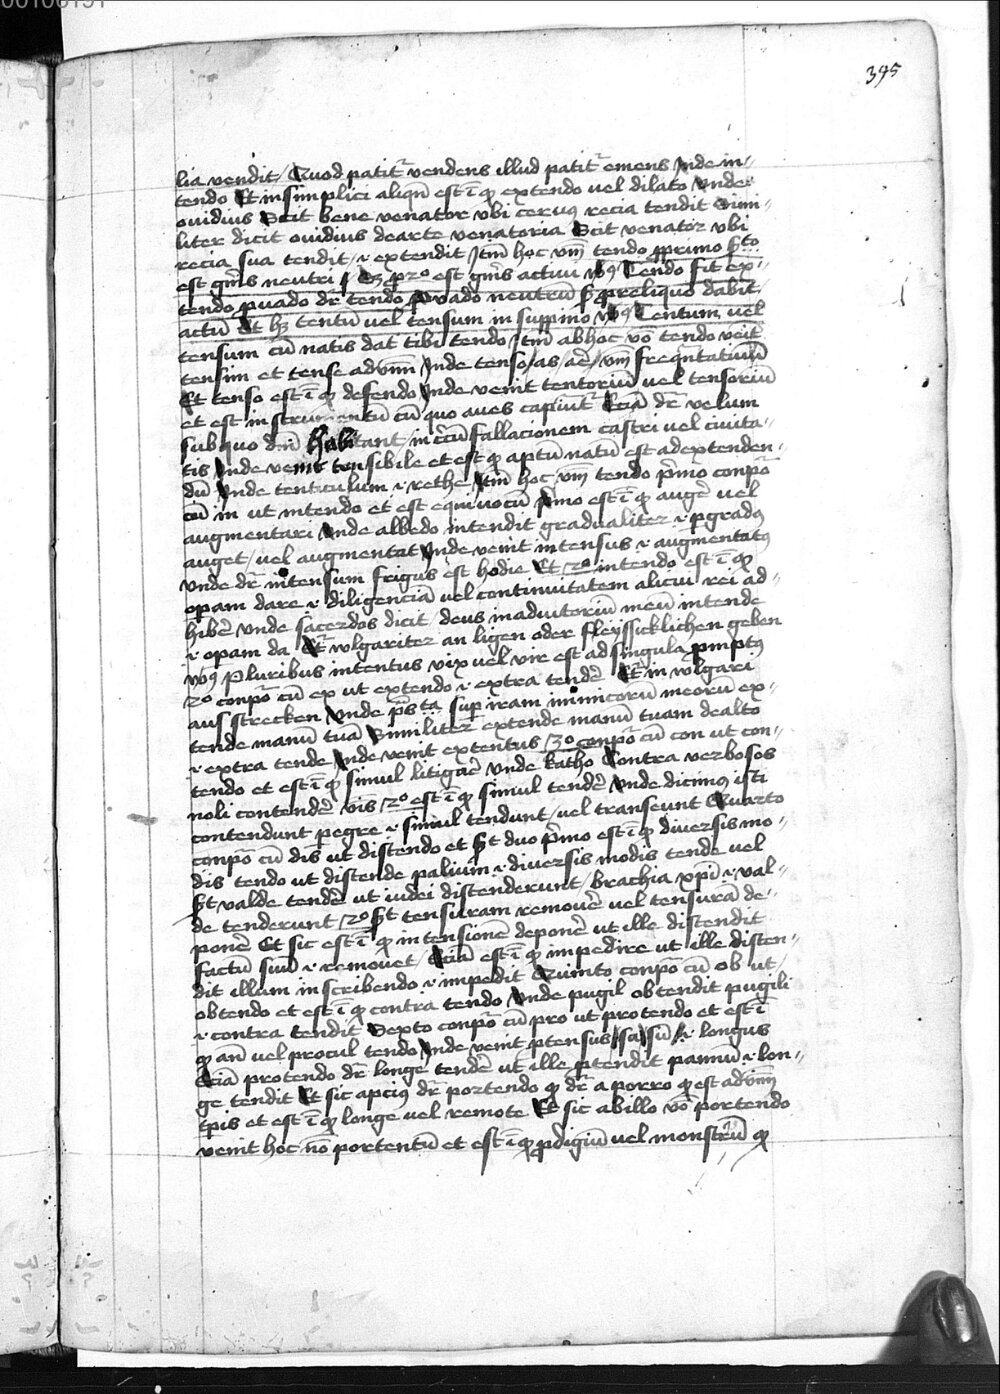 00100191
395
lia vendit / Quod patit᷑ vendens illud patit᷑ emens Inde in⸗
tendo Et in simplici aliqñ est ī ꝙ extendo uel dilato Unde
ouidius Scit bene venator ubi ceruꝰ recia tendit Simi⸗
liter dicit ouidius de arte venatoria Scit venator ubi
recia sua tendit ⁊ extendit Itm̄ hoc vm̄ tendo primo
est gn̄is neutri est gn̄is actiui Tendo fit ex⸗
tendo ꝓ uado dr̄ tendo Pro uado neutrū ꝓ reliquo dabit
actū Et hꝫ tentū uel tensum in suppino Tentum uel
tensum cū natis dat tibi tendo Itm̄ ab hoc vō tendo venit
tensim et tense aduīm Inde tenso / as / are / vm̄ freqntatiuū
Et tenso est ī ꝙ defendo Inde venit tentoriū uel tensoriū
et est instrumentū cū quo aues capiunt᷑ Eciā dr̄ velum
sub quo dn̄i habitant in fallacionem castri uel ciuita⸗
tis Inde venit tensibile et est ꝙ aptū natū est ad extenden⸗
dū Unde tenticulum ⁊ rethe Itm̄ hoc vm̄ tendo p̄mo conpo᷑
cū in ut intendo et est equiuocū P̄mo est ī ꝙ auge᷑ uel
augmentari Unde albedo intendit gradualiter ⁊ ꝑ gradꝰ
auget / uel augmentat Inde venit intensus ⁊ augmentatꝰ
Unde dr̄ intensum frigus est hodie Et 2o intendo est ī ꝙ
opam dare ⁊ diligenciā uel continuitatem alicui rei ad⸗
hibe᷑ Unde sacerdos dicit / deus in adiutoriū meū intende
⁊ opam da Et᷑ wlgariter an ligen oder fleyssicklichen geben
Pluribus intentus vix uel vir est ad singula promptꝰ
2o conpo᷑ cū ex ut extendo ⁊ extra tende᷑ Et᷑ in wlgari
aus strecken Unde ps̄ta sup iram inimicorū meorū ex⸗
tende manū tuā Similiter extende manū tuam de alto
⁊ extra tende Inde venit extentus 3o conpo᷑ cū con ut con⸗
tendo et est ī ꝙ simul litigare᷑ Unde katho Contra verbosos
noli contende᷑ vbis 2o est ī ꝙ simul tende᷑ Unde dicimꝰ isti
contendunt pegre ⁊ simul tendunt / uel transeunt Quarto
conpo᷑ cū dis ut distendo et duo p̄mo est ī ꝙ diuersis mo⸗
dis tendo ut distende palium ⁊ diuersis modis tende uel
valde tende᷑ ut iudei distenderunt / brachia xpī ⁊ val⸗
de tenderunt 2o tensuram remoue᷑ uel tensurā de⸗
pone᷑ Et sic est ī ꝙ intensione᷑ depone᷑ ut ille distendit
factū suū ⁊ remouet / Eciā est ī ꝙ impedire ut ille disten⸗
dit illum in scribendo ⁊ impedit Quinto conpo᷑ cū ob ut
obtendo et est ī ꝙ contra tendo Unde pugil obtendit pugili
⁊ contra tendit Sexto conpo᷑ cū pro ut protendo et est ī
ꝙ an̄ uel procul tendo Inde venit ꝓtensus / sa / sū / ⁊ longus
Eciā protendo dr̄ longe tende᷑ ut ille ꝓtendit pannū ⁊ lon⸗
ge tendit Et sic apciꝰ dr̄ portendo ꝙ dr̄ a porro ꝙ est aduīm
tp̄is et est ī ꝙ longe uel remote Et sic ab illo vō portendo
venit hoc nō portentū et est ī ꝙ ꝓdigiū uel monstrū ꝙ